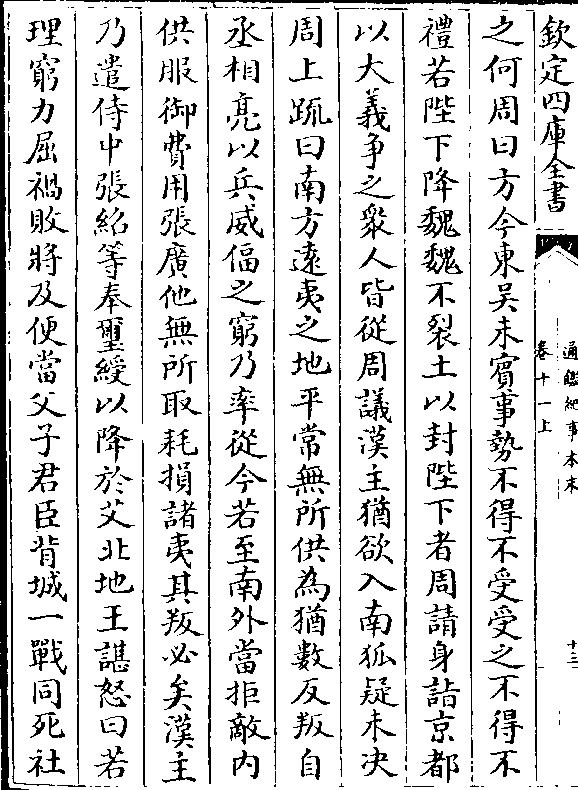 欽定四庫全書
通鑑紀事本末
卷十一上
十三
之何周曰方今東吳未賓事勢不得不受受之不得不
禮若陛下降魏魏不裂土以封陛下者周請身詣京都
以大義争之衆人皆從周議漢主猶欲入南狐疑未决
周上疏曰南方遠夷之地平常無所供為猶數反叛自
丞相亮以兵威偪之窮乃率從今若至南外當拒敵内
供服御費用張廣他無所取耗損諸夷其叛必矣漢主
乃遣侍中張紹等奉璽綬以降於艾北地王諶怒曰若
理窮力屈禍敗將及便當父子君臣背城一戰同死社